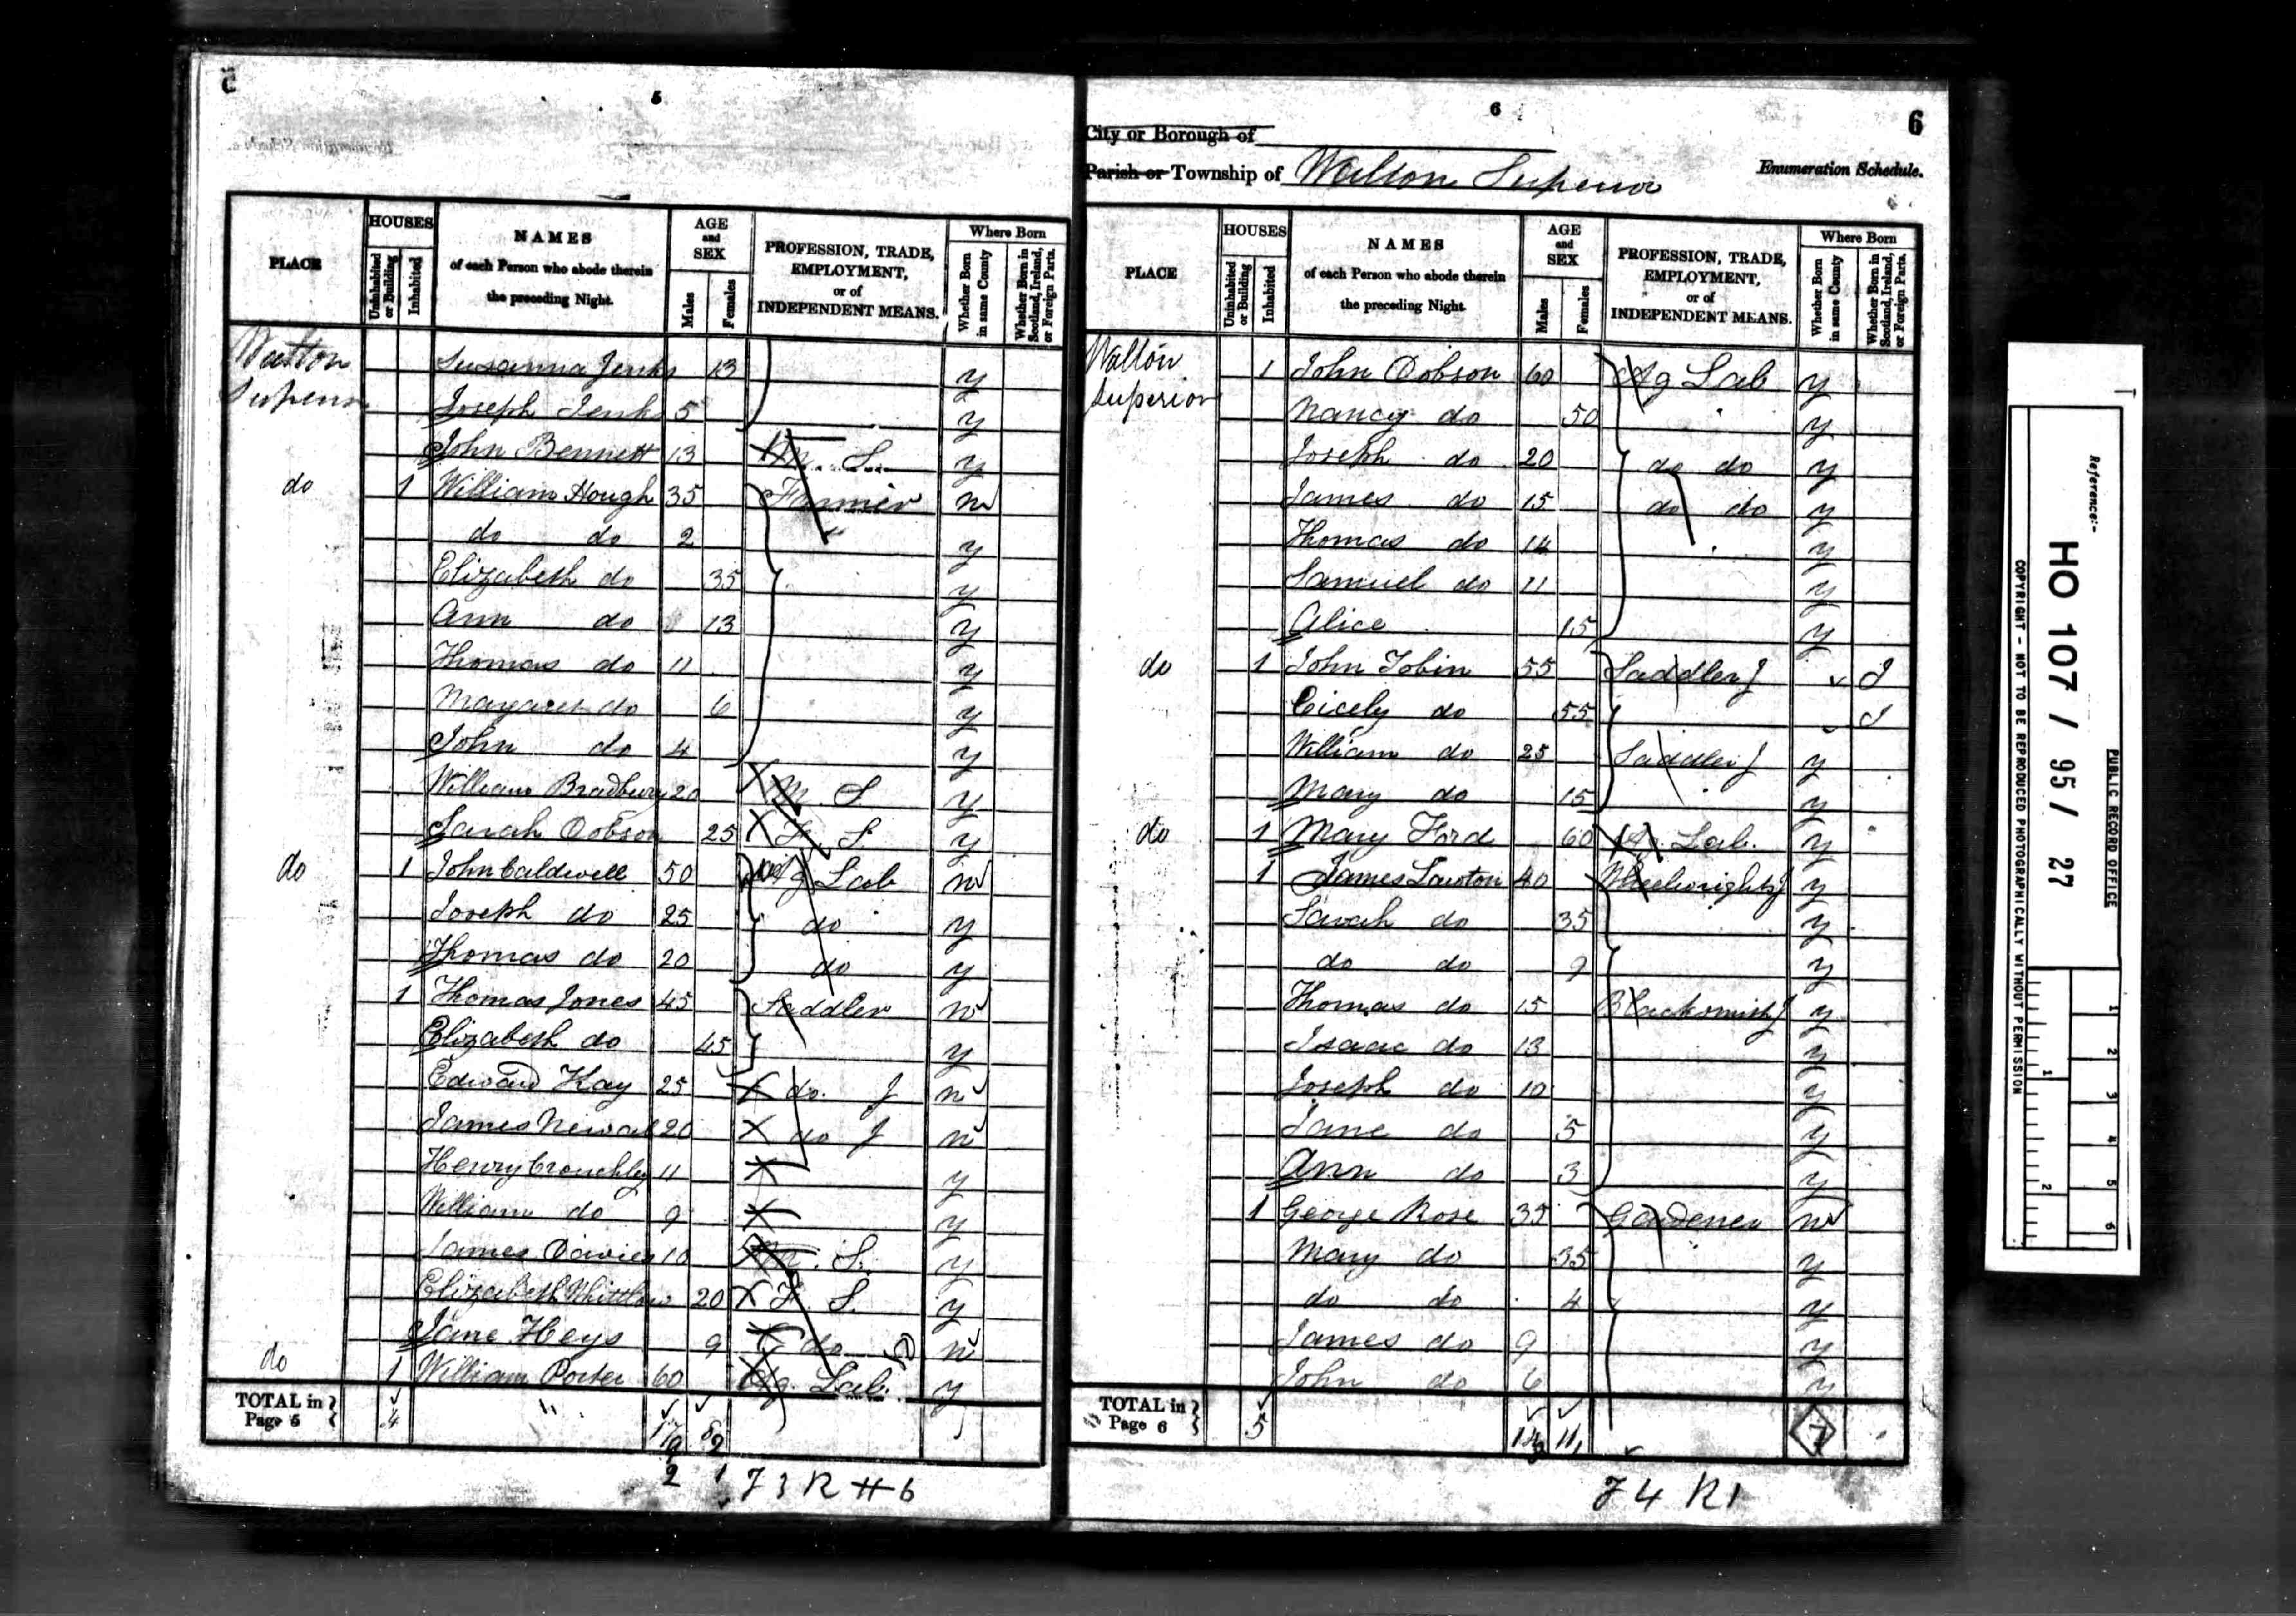 5
City or Borough of
Parish or Township of Walton Superior
6
6
Enumeration Schedule.
PLACE
HOUSES
Uninhabited or Building
Inhabited
NAMES
of each Person who abode therein
the preceding Night.
AGE and SEX
Males
Females
PROFESSION, TRADE, EMPLOYMENT, or of INDEPENDENT MEANS.
Where Born
Whether Born in same County
Whether Born in Scotland, Ireland, or Foreign Parts.
Walton Superior Susanna Jenks 13 y
Joseph Jenks 5 y
John Bennett 13 M. S. y
do 1 William Hough 35 Farmer n
do do 2 y
Elizabeth do 35 y
Ann do 13 y
Thomas do 11 y
Margaret do 6 y
John do 4 y
William Bradbury 20 M. S y
Sarah Dobson 25 F. S y
do 1 John Caldwell 50 Ag Lab n
Joseph do 25 do y
Thomas do 20 do y
1 Thomas Jones 45 Saddler n
Elizabeth do 45 y
Edward Kay 25 do. J n
James Newal 20 do J n
Henry Crouchley 11 y
William do 9 y
James Davies 10 M. S. y
Elizabeth Whittlow 20 F S. y
Jane Heys 9 do n
do 1 William Porter 60 Ag. Lab. y
TOTAL in Page 5 4
PLACE
HOUSES
Uninhabited or Building
Inhabited
NAMES
of each Person who abode therein
the preceding Night.
AGE and SEX
Males
Females
PROFESSION, TRADE, EMPLOYMENT, or of INDEPENDENT MEANS.
Where Born
Whether Born in same County
Whether Born in Scotland, Ireland, or Foreign Parts.
Walton Superior 1 John Dobson 60 Ag Lab y
Nancy do 50 y
Joseph do 20 do do y
James do 15 do do y
Thomas do 14 y
Samuel do 11 y
Alice 15 y
do 1 John Tobin 55 Saddler J I
Cicely do 55 I
William do 25 Saddler J y
Mary do 15 y
do 1 Mary Ford 60 Lab. y
1 James Lawton 40 Wheelwright J y
Sarah do 35 y
do do 9 y
Thomas do 15 Blacksmith J y
Isaac do 13 y
Joseph do 10 y
Jane do 5 y
Ann do 3 y
1 George Rose 35 Gardener n
Mary do 35 y
do do 4 y
James do 9 y
John do 6 y
TOTAL in Page 6 5 11
7
2 1 F 3 R # 6
F 4 R 1
Reference:-
HO 107 / 95 / 27
PUBLIC RECORD OFFICE
COPYRIGHT - NOT TO BE REPRODUCED PHOTOGRAPHICALLY WITHOUT PERMISSION
1
2
3
4
5
6
1
2